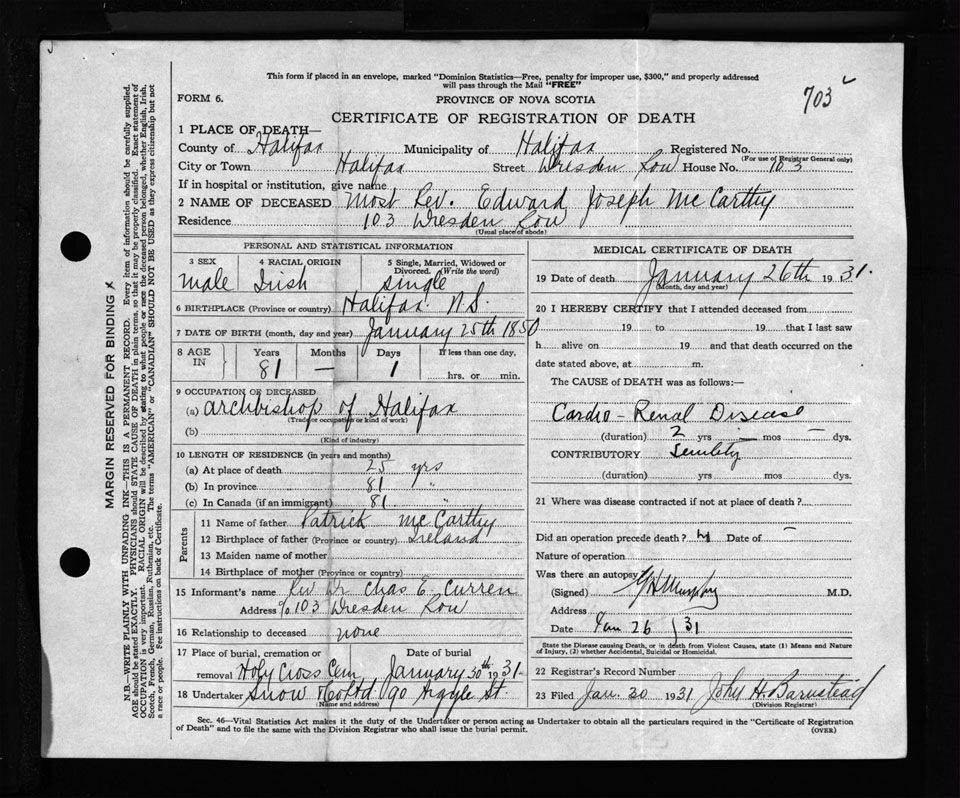 This form if placed in an envelope, marked "Dominion Statistics—Free, penalty for improper use, $300," and properly addressed
will pass through the Mail "FREE"
703
FORM 6.
PROVINCE OF NOVA SCOTIA
CERTIFICATE OF REGISTRATION OF DEATH
1 PLACE OF DEATH—
County of Halifax Municipality of Halifax Registered No.
(For use of Registrar General only)
City or Town Halifax Street Dresden Row House No. 103
If in hospital or institution, give name
2 NAME OF DECEASED Most Rev. Edward Joseph McCarthy
Residence 103 Dresden Row
(Usual place of abode)
PERSONAL AND STATISTICAL INFORMATION
3 SEX 4 RACIAL ORIGIN 5 Single, Married, Widowed or
Divorced. (Write the word)
Male Irish Single
6 BIRTHPLACE (Province or country) Halifax N.S.
7 DATE OF BIRTH (month, day and year) January 25th 1850
8 AGE IN Years Months Days If less than one day,
81 — 1 hrs. or min.
9 OCCUPATION OF DECEASED
(a) Archbishop of Halifax
(Trade or occupation or kind of work)
(b)
(Kind of industry)
10 LENGTH OF RESIDENCE (in years and months)
(a) At place of death 25 yrs
(b) In province 81 "
(c) In Canada (if an immigrant) 81 "
Parents
11 Name of father Patrick McCarthy
12 Birthplace of father (Province or country) Ireland
13 Maiden name of mother
14 Birthplace of mother (Province or country)
15 Informant's name Rev Dr Chas E. Curren
Address % 103 Dresden Row
16 Relationship to deceased none
17 Place of burial, cremation or Date of burial
removal Holy Cross Cem January 30th 1931
18 Undertaker Snow & Co Ltd 90 Argyle St.
(Name and address)
MEDICAL CERTIFICATE OF DEATH
19 Date of death January 26th 1931.
(Month, day and year)
20 I HEREBY CERTIFY that I attended deceased from
19 to 19 that I last saw
h alive on 19 and that death occurred on the
date stated above, at m.
The CAUSE of DEATH was as follows:—
Cardio-Renal Disease
(duration) 2 yrs — mos — dys.
CONTRIBUTORY Senility
(duration) yrs mos dys.
21 Where was disease contracted if not at place of death?
Did an operation precede death? Date of —
Nature of operation
Was there an autopsy
(Signed) Murphy M.D.
Address
Date Jan 26 / 31
State the Disease causing Death, or in death from Violent Causes, state (1) Means and Nature
of Injury, (2) whether Accidental, Suicidal or Homicidal.
22 Registrar's Record Number
23 Filed Jan. 30 1931 John H. Barnstead
(Division Registrar)
Sec. 46—Vital Statistics Act makes it the duty of the Undertaker or person acting as Undertaker to obtain all the particulars required in the "Certificate of Registration
of Death" and to file the same with the Division Registrar who shall issue the burial permit. (OVER)
MARGIN RESERVED FOR BINDING
N.B.—WRITE PLAINLY WITH UNFADING INK—THIS IS A PERMANENT RECORD. Every item of information should be carefully supplied.
AGE should be stated EXACTLY. PHYSICIANS should STATE CAUSE OF DEATH in plain terms, so that it may be properly classified. Exact statement of
OCCUPATION is very important. RACIAL ORIGIN will be described by stating to what people or race the deceased person belonged, whether English, Irish,
Scotch, French, German, Russian, Ruthenian, etc. The terms "AMERICAN" or "CANADIAN" SHOULD NOT BE USED as they express citizenship but not
a race or people. See instructions on back of Certificate.